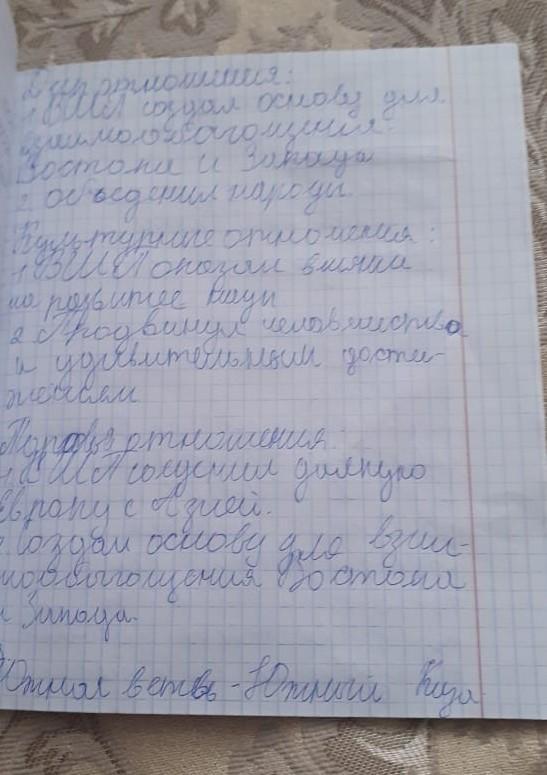 Дип отношения:
1. ВШП создал основу для
взаимообогощения
Востока и Запада
2. объеденил народы
Культурные отношения:
1. ВШП оказал влияни
на розвитее
2 Продвинул человечество
к удивительным дости-
жениям
Торговые отношения:
1. ВШП соеденил далекую
Европу с Азией.
создал основу для взаи-
мообогощения Востока
и Запада.
Южная ветвь - Южный